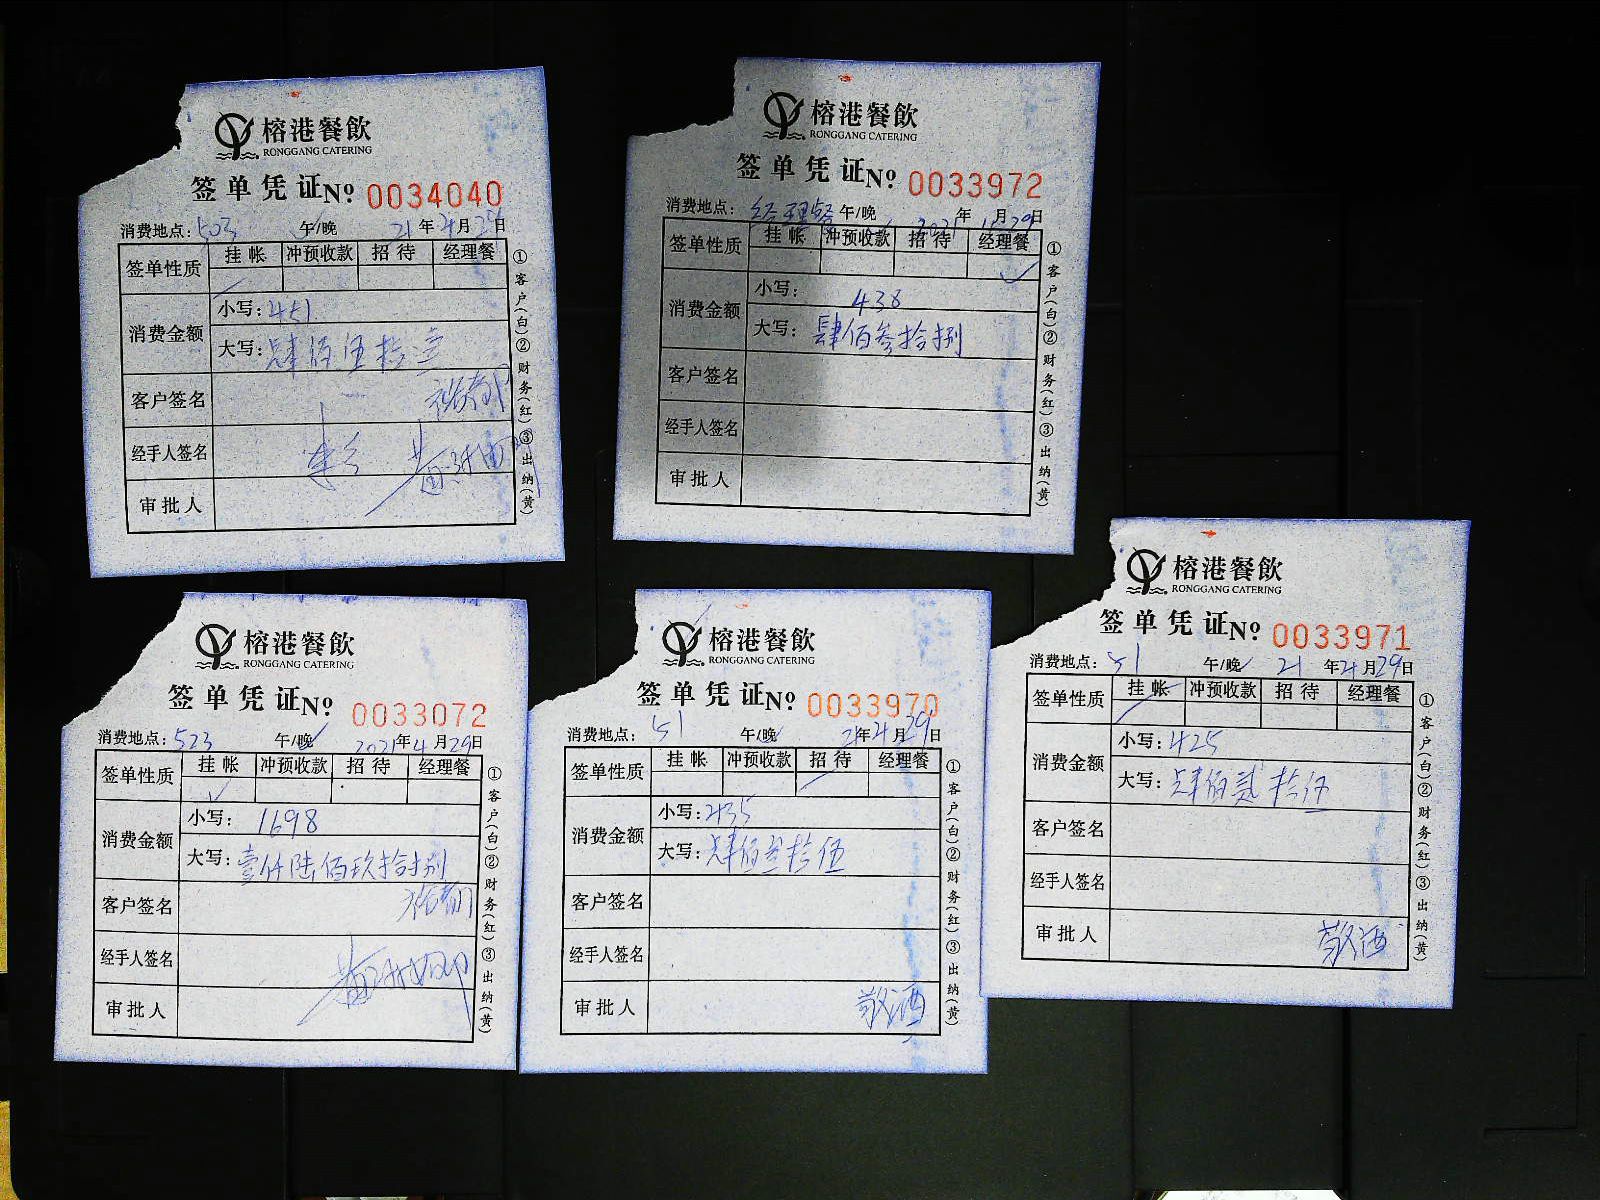 榕港餐飲
RONGGANG CATERING
签单凭证 № 0034040
消费地点: 503 午/晚 21年4月 日
签单性质 挂帐 冲预收款 招待 经理餐
消费金额 小写: 451
大写: 肆佰伍拾壹
客户签名
经手人签名
审批人
①客户(白)②财务(红)③出纳(黄)
榕港餐飲
RONGGANG CATERING
签单凭证 № 0033972
消费地点: 经理餐 午/晚 2021年 月29日
签单性质 挂帐 冲预收款 招待 经理餐
✓
消费金额 小写: 438
大写: 肆佰叁拾捌
客户签名
经手人签名
审批人
①客户(白)②财务(红)③出纳(黄)
榕港餐飲
RONGGANG CATERING
签单凭证 № 0033072
消费地点: 523 午/晚 2021年4月29日
签单性质 挂帐 冲预收款 招待 经理餐
✓
消费金额 小写: 1698
大写: 壹仟陆佰玖拾捌
客户签名
经手人签名
审批人
①客户(白)②财务(红)③出纳(黄)
榕港餐飲
RONGGANG CATERING
签单凭证 № 0033970
消费地点: 51 午/晚 21年4月29日
签单性质 挂帐 冲预收款 招待 经理餐
消费金额 小写: 435
大写: 肆佰叁拾伍
客户签名
经手人签名
审批人 敬酒
①客户(白)②财务(红)③出纳(黄)
榕港餐飲
RONGGANG CATERING
签单凭证 № 0033971
消费地点: 51 午/晚 21年4月29日
签单性质 挂帐 冲预收款 招待 经理餐
消费金额 小写: 425
大写: 肆佰贰拾伍
客户签名
经手人签名
审批人 敬酒
①客户(白)②财务(红)③出纳(黄)